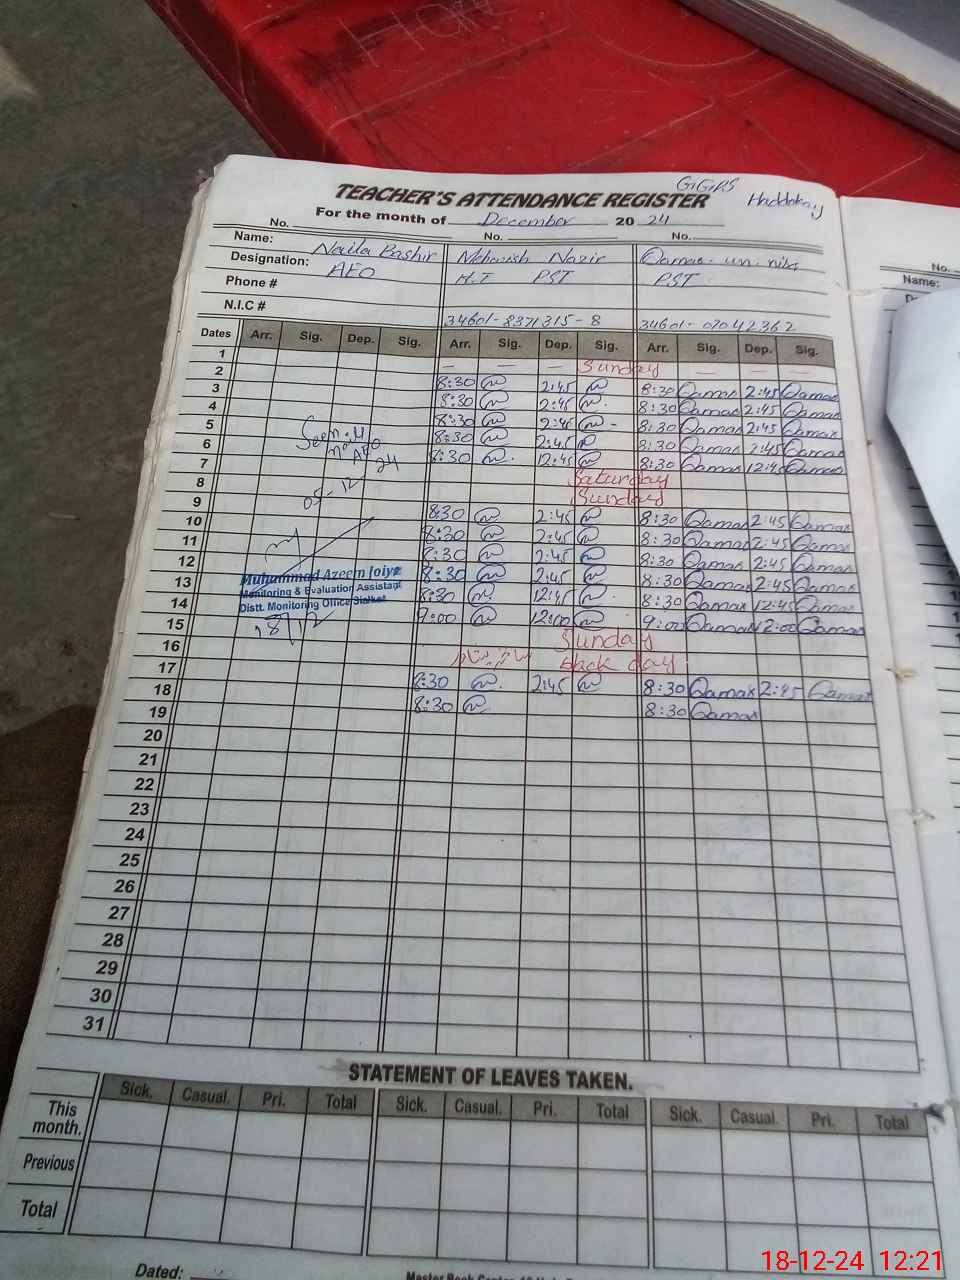 TEACHER'S ATTENDANCE REGISTER
For the month of December 20 24
No. No. No.
Name: Naila Bashir Mehwish Nazir Qamar-un-nisa
Designation: AEO H.T PST PST
Phone #
N.I.C # 34601-8371315-8 34601-07042362
Dates Arr. Sig. Dep. Sig. Arr. Sig. Dep. Sig. Arr. Sig. Dep. Sig.
1 — — — Sunday — — —
2 8:30 2:45 8:30 Qamar 2:45 Qamar
3 8:30 2:45 8:30 Qamar 2:45 Qamar
4 8:30 2:45 8:30 Qamar 2:45 Qamar
5 8:30 2:45 8:30 Qamar 2:45 Qamar
6 8:30 12:45 8:30 Qamar 12:45 Qamar
7 Saturday
8 Sunday
9 8:30 2:45 8:30 Qamar 2:45 Qamar
10 8:30 2:45 8:30 Qamar 2:45 Qamar
11 8:30 2:45 8:30 Qamar 2:45 Qamar
12 8:30 2:45 8:30 Qamar 2:45 Qamar
13 8:30 12:45 8:30 Qamar 12:45 Qamar
14 9:00 12:00 9:00 Qamar 12:00 Qamar
15 Sunday
16 day
17 8:30 2:45 8:30 Qamar 2:45 Qamar
18 8:30 8:30 Qamar
19
20
21
22
23
24
25
26
27
28
29
30
31
Seen
AEO
05-12-24
Muhammad Azeem Joiya
Monitoring & Evaluation Assistant
Distt. Monitoring Office Sialkot
18/12
STATEMENT OF LEAVES TAKEN.
Sick. Casual. Pri. Total Sick. Casual. Pri. Total Sick. Casual. Pri. Total
This month.
Previous
Total
Dated:
No.
Name:
18-12-24 12:21